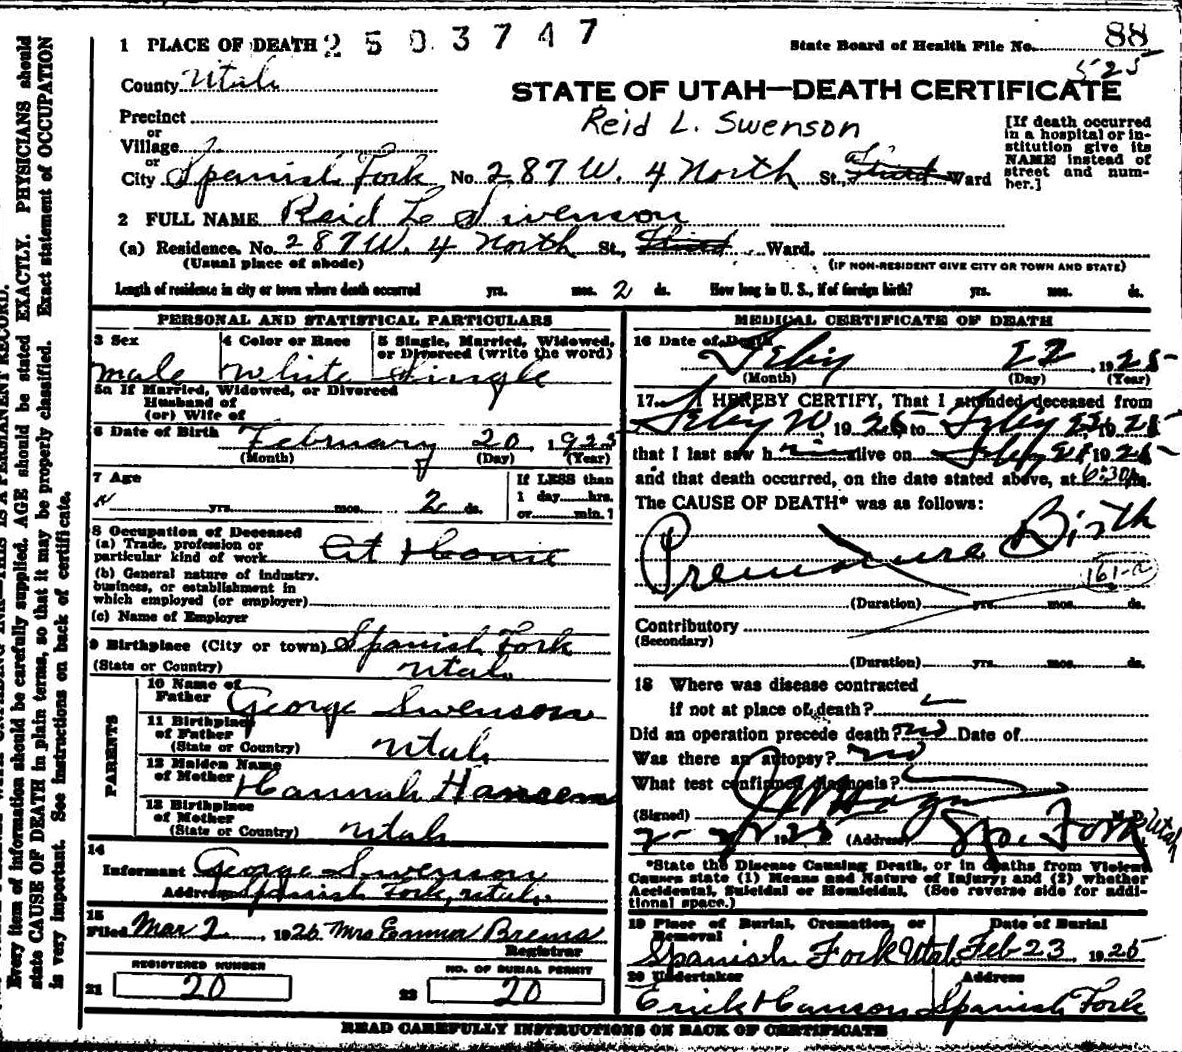 1 PLACE OF DEATH 2503747
State Board of Health File No. 88
525
County Utah
STATE OF UTAH—DEATH CERTIFICATE
Precinct
Reid L. Swenson
or
Village
or
City Spanish Fork No. 287 W. 4 North St., Third Ward
[If death occurred
in a hospital or in-
stitution give its
NAME instead of
street and num-
ber.]
2 FULL NAME Reid L Swenson
(a) Residence. No. 287 W. 4 North St., Third Ward.
(Usual place of abode) (IF NON-RESIDENT GIVE CITY OR TOWN AND STATE)
Length of residence in city or town where death occurred yrs. mos. 2 ds. How long in U. S., if of foreign birth? yrs. mos. ds.
PERSONAL AND STATISTICAL PARTICULARS
3 Sex 4 Color or Race 5 Single, Married, Widowed,
or Divorced (write the word)
male White Single
5a If Married, Widowed, or Divorced
Husband of
(or) Wife of
6 Date of Birth February 20, 1925
(Month) (Day) (Year)
7 Age If LESS than
1 day hrs.
yrs. mos. 2 ds. or min.?
8 Occupation of Deceased
(a) Trade, profession or
particular kind of work At Home
(b) General nature of industry,
business, or establishment in
which employed (or employer)
(c) Name of Employer
9 Birthplace (City or town) Spanish Fork
(State or Country) Utah
PARENTS
10 Name of
Father George Swenson
11 Birthplace
of Father
(State or Country) Utah
12 Maiden Name
of Mother Hannah Hansen
13 Birthplace
of Mother
(State or Country) Utah
14
Informant George Swenson
Address Spanish Fork, Utah.
15
Filed Mar 2, 1925 Mrs Emma Brems
Registrar
REGISTERED NUMBER NO. OF BURIAL PERMIT
21 20 22 20
MEDICAL CERTIFICATE OF DEATH
16 Date of Death Feby 22, 1925
(Month) (Day) (Year)
17 I HEREBY CERTIFY, That I attended deceased from
Feby 20, 1925, to Feby 22, 1925
that I last saw him alive on Feby 21 1925
and that death occurred, on the date stated above, at 6:30 m.
The CAUSE OF DEATH* was as follows:
Premature Birth
161-a
(Duration) yrs. mos. ds.
Contributory
(Secondary)
(Duration) yrs. mos. ds.
18 Where was disease contracted
if not at place of death?
Did an operation precede death? no Date of
Was there an autopsy? no
What test confirmed diagnosis?
(Signed) M. D.
1925 (Address) Sp. Fork, Utah
*State the Disease Causing Death, or in deaths from Violent
Causes state (1) Means and Nature of Injury; and (2) whether
Accidental, Suicidal or Homicidal. (See reverse side for addi-
tional space.)
19 Place of Burial, Cremation, or Date of Burial
Removal
Spanish Fork Utah Feb 23 1925
20 Undertaker Address
Erick Hanson Spanish Fork
READ CAREFULLY INSTRUCTIONS ON BACK OF CERTIFICATE
IS A PERMANENT RECORD.
Every item of information should be carefully supplied. AGE should be stated EXACTLY. PHYSICIANS should
state CAUSE OF DEATH in plain terms, so that it may be properly classified. Exact statement of OCCUPATION
is very important. See instructions on back of certificate.